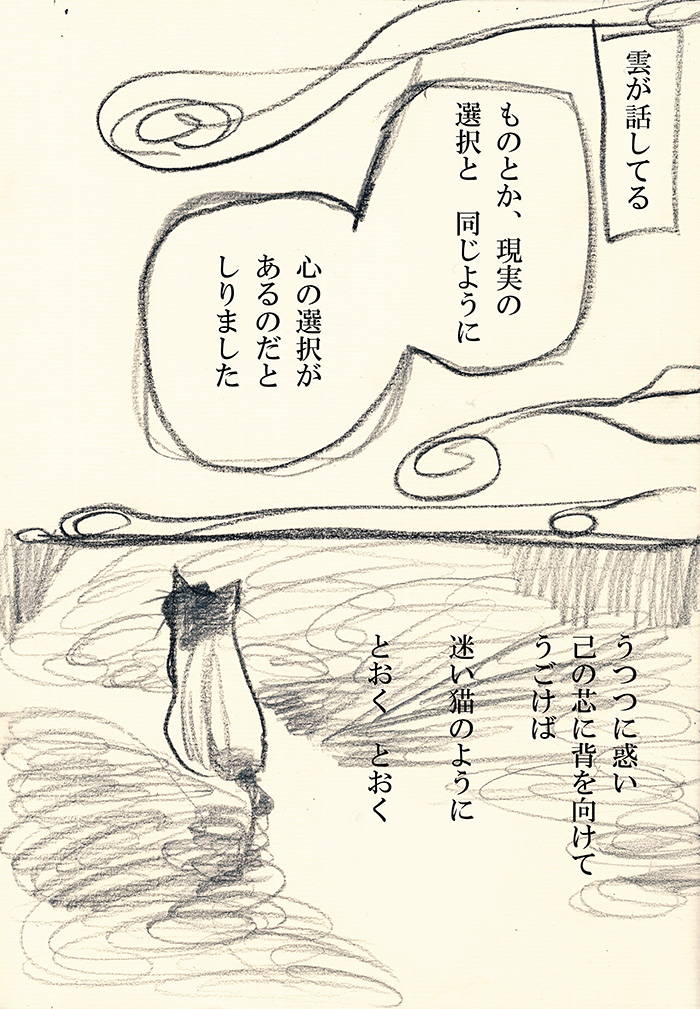 雲が話してる
ものとか、現実の
選択と　同じように
心の選択が
あるのだと
しりました
うつつに惑い
己の芯に背を向けて
うごけば
迷い猫のように
とおく　とおく